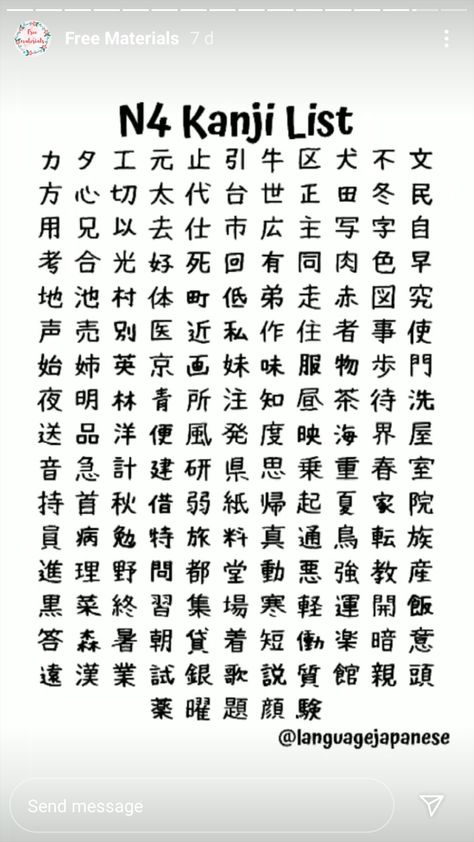 Free Materials 7 d
N4 Kanji List
力 夕 工 元 止 引 牛 区 犬 不 文
方 心 切 太 代 台 世 正 田 冬 民
用 兄 以 去 仕 市 広 主 写 字 自
考 合 光 好 死 回 有 同 肉 色 早
地 池 村 体 町 低 弟 走 赤 図 究
声 売 別 医 近 私 作 住 者 事 使
始 姉 英 京 画 妹 味 服 物 歩 門
夜 明 林 青 所 注 知 昼 茶 待 洗
送 品 洋 便 風 発 度 映 海 界 屋
音 急 計 建 研 県 思 乗 重 春 室
持 首 秋 借 弱 紙 帰 起 夏 家 院
員 病 勉 特 旅 料 真 通 鳥 転 族
進 理 野 問 都 堂 動 悪 強 教 産
黒 菜 終 習 集 場 寒 軽 運 開 飯
答 森 暑 朝 貸 着 短 働 楽 暗 意
遠 漢 業 試 銀 歌 説 質 館 親 頭
薬 曜 題 顔 験
@languagejapanese
Send message